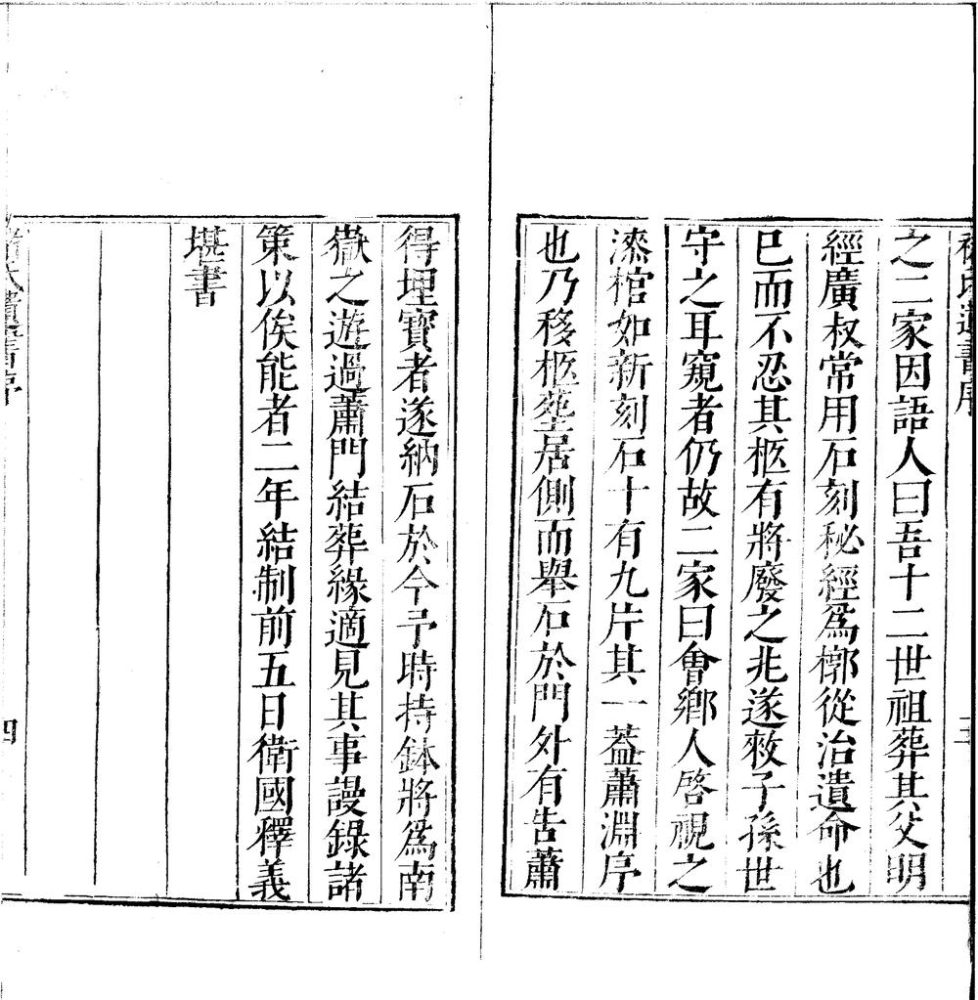 褚氏遺書序
三
之二家因語人曰吾十二世祖葬其父明
經廣叔常用石刻秘經爲槨從治遺命也
已而不忍其柩有將廢之兆遂敕子孫世
守之耳窺者仍故二家曰會鄉人啓視之
漆棺如新刻石十有九片其一蓋蕭淵序
也乃移柩葬居側而舉石於門外有告蕭
得埋寶者遂納石於今予時持鉢將爲南
嶽之遊過蕭門結葬緣適見其事謾錄諸
策以俟能者二年結制前五日衛國釋義
堪書
四